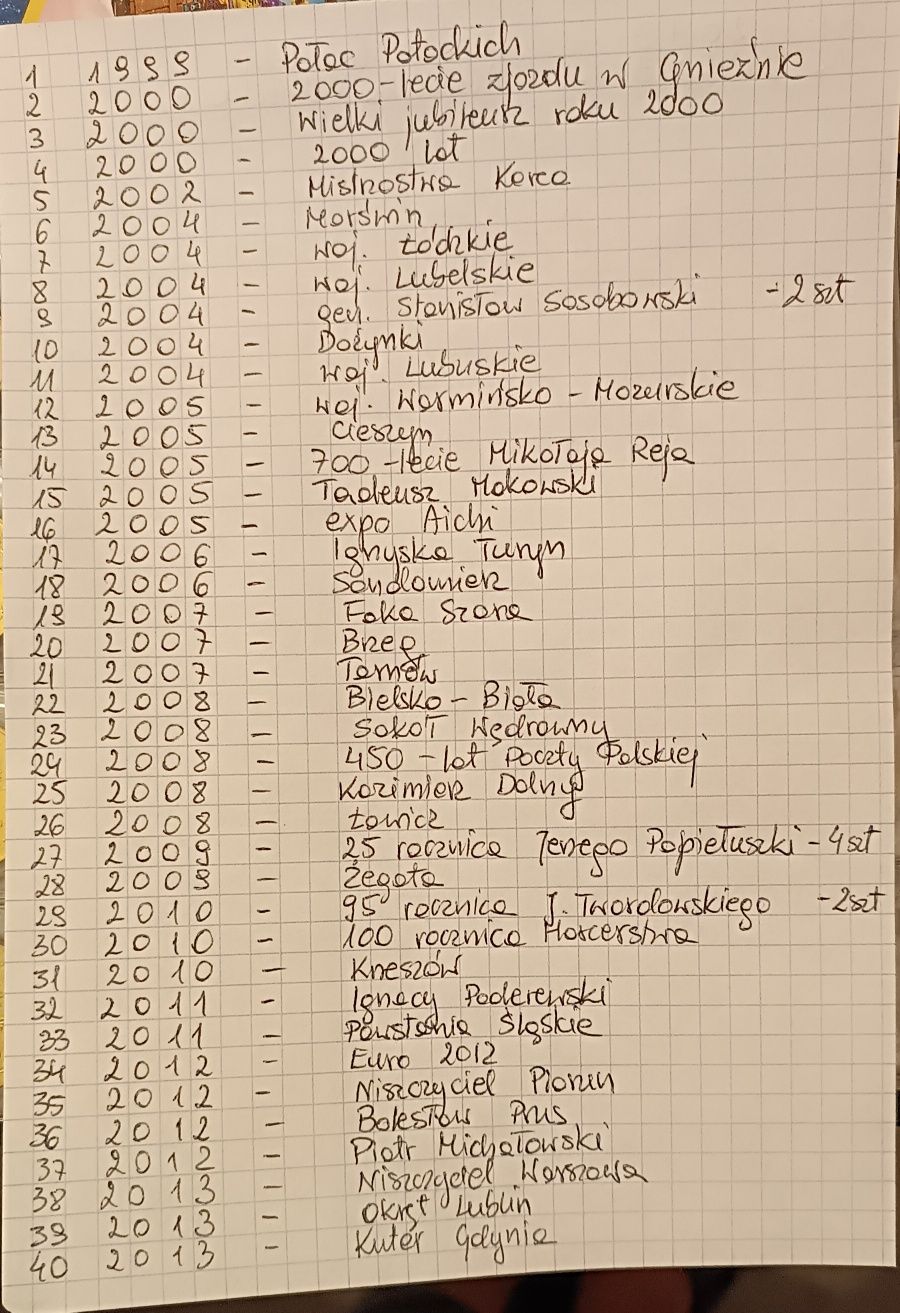 1 1999 - Pałac Potockich
2 2000 - 2000-lecie zjazdu w Gnieźnie
3 2000 - Wielki jubileusz roku 2000
4 2000 - 2000 lat
5 2002 - Mistrzostwa Korea
6 2004 - Morświn
7 2004 - woj. Łódzkie
8 2004 - woj. Lubelskie
9 2004 - gen. Stanisław Sosabowski - 2 szt
10 2004 - Dożynki
11 2004 - woj. Lubuskie
12 2005 - woj. Warmińsko - Mazurskie
13 2005 - Cieszyn
14 2005 - 700 - lecie Mikołaja Reja
15 2005 - Tadeusz Makowski
16 2005 - expo Aichi
17 2006 - Igryska Turyn
18 2006 - Sandomierz
19 2007 - Foka Szara
20 2007 - Brzeg
21 2007 - Tarnów
22 2008 - Bielsko - Biała
23 2008 - Sokół Wędrowny
24 2008 - 450 - lat Poczty Polskiej
25 2008 - Kazimierz Dolny
26 2008 - Łowicz
27 2009 - 25 rocznica Jerzego Popiełuszki - 4 szt
28 2009 - Żegota
29 2010 - 95 rocznica J. Twardowskiego - 2 szt
30 2010 - 100 rocznica Harcerstwa
31 2010 - Krzeszów
32 2011 - Ignacy Paderewski
33 2011 - Powstania Śląskie
34 2012 - Euro 2012
35 2012 - Niszczyciel Piorun
36 2012 - Bolesław Prus
37 2012 - Piotr Michałowski
38 2013 - Niszczyciel Warszawa
39 2013 - Okręt Lublin
40 2013 - Kuter Gdynia